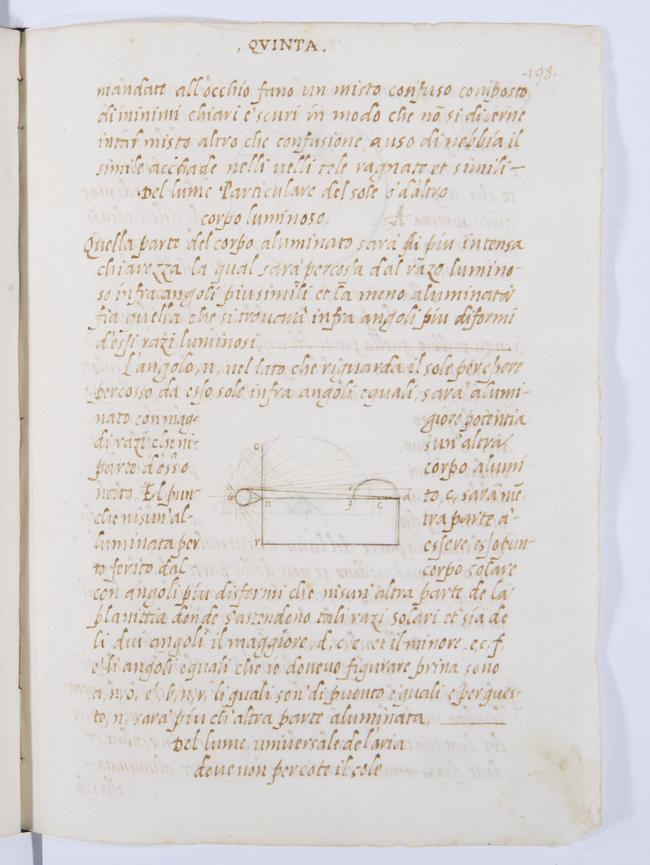 . QVINTA .
·198·
mandate all'occhio fano un misto confuso composto
di minimi chiari e scuri in modo che nõ si dicerne
intal misto altro che confusione, a uso di nebbia il
simile accade nelli velli tele ragnate et simili –
Del lume Particulare del sole o d'altro
corpo luminoso,
Quella parte del corpo aluminato sarà di piu intensa
chiarezza la qual sarà percossa dal razo lumino-
so infra angoli piu simili et la meno aluminata
fia quella che si trovarà infra angoli piu diformi
d'essi razi luminosi,
L'angolo, n, nel lato che riguarda il sole per essere
percosso da esso sole infra angoli equali, sarà alumi-
nato con mag- giore potentia
di razi che ni- sun altra
parte d'esso corpo alumi-
nato, El pun- to, c, sarà mẽ
che nisun al- tra parte a-
luminata per essere esso pun-
to ferito dal corpo solare
con angoli piu disformi che nisun altra parte de la
planittia donde s'astendeno tali razi solari et sia de
li dui angoli il maggiore, d, c, e, et il minore, e, c, f,
e li angoli equali che io dovevo figurare prima sono
a, n, o, e, b, n, r, li quali son di puonto equali e per ques-
to, n, sarà piu ch'altra parte aluminata,
Del lume, universale de l'aria
dove non percote il sole
o
a
b
n
r
f
c